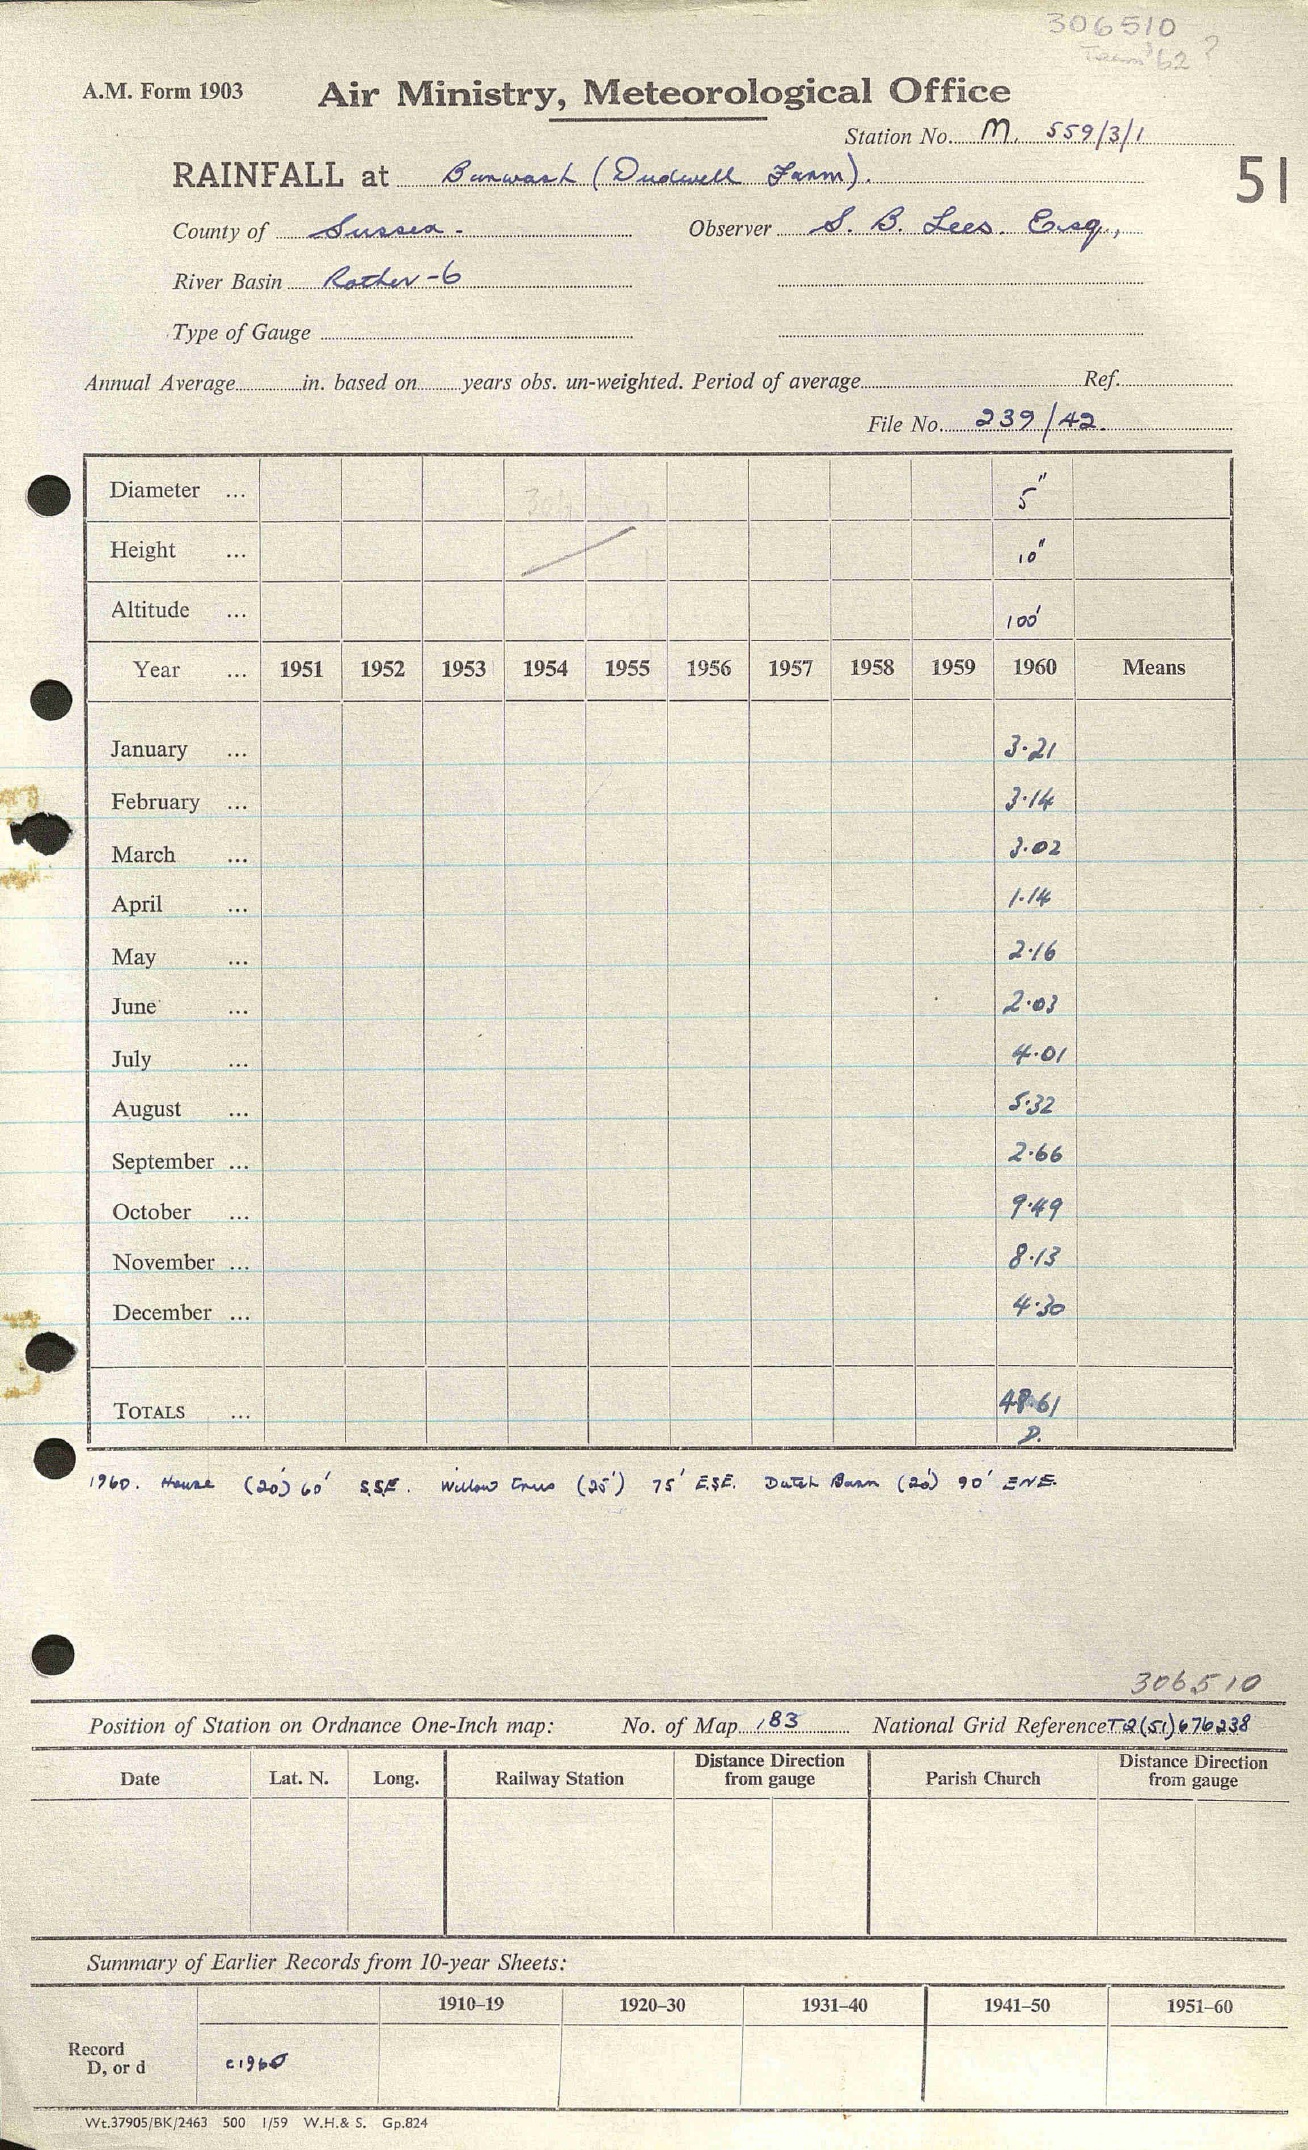 306510
'62 ?
A.M. Form 1903 Air Ministry, Meteorological Office
Station No. M. 559/3/1
RAINFALL at Burwash (Dudwell Farm).
51
County of Sussex. Observer S. B. Lees. Esq.,
River Basin Rother-6
Type of Gauge
Annual Average in. based on years obs. un-weighted. Period of average Ref.
File No. 239/42.
Diameter ... 5"
Height ... 10"
Altitude ... 100'
Year ... 1951 1952 1953 1954 1955 1956 1957 1958 1959 1960 Means
January ... 3.21
February ... 3.14
March ... 3.02
April ... 1.14
May ... 2.16
June ... 2.03
July ... 4.01
August ... 5.32
September ... 2.66
October ... 9.49
November ... 8.13
December ... 4.30
TOTALS ... 48.61
D.
1960. House (20') 60' S.S.E. Willow Trees (25') 75' E.S.E. Dutch Barn (20') 90' ENE.
306510
Position of Station on Ordnance One-Inch map: No. of Map 183 National Grid Reference TQ(51)676238
Date Lat. N. Long. Railway Station Distance Direction from gauge Parish Church Distance Direction from gauge
Summary of Earlier Records from 10-year Sheets:
1910–19 1920–30 1931–40 1941–50 1951–60
Record
D, or d c1960
Wt.37905/BK/2463 500 1/59 W.H.& S. Gp.824